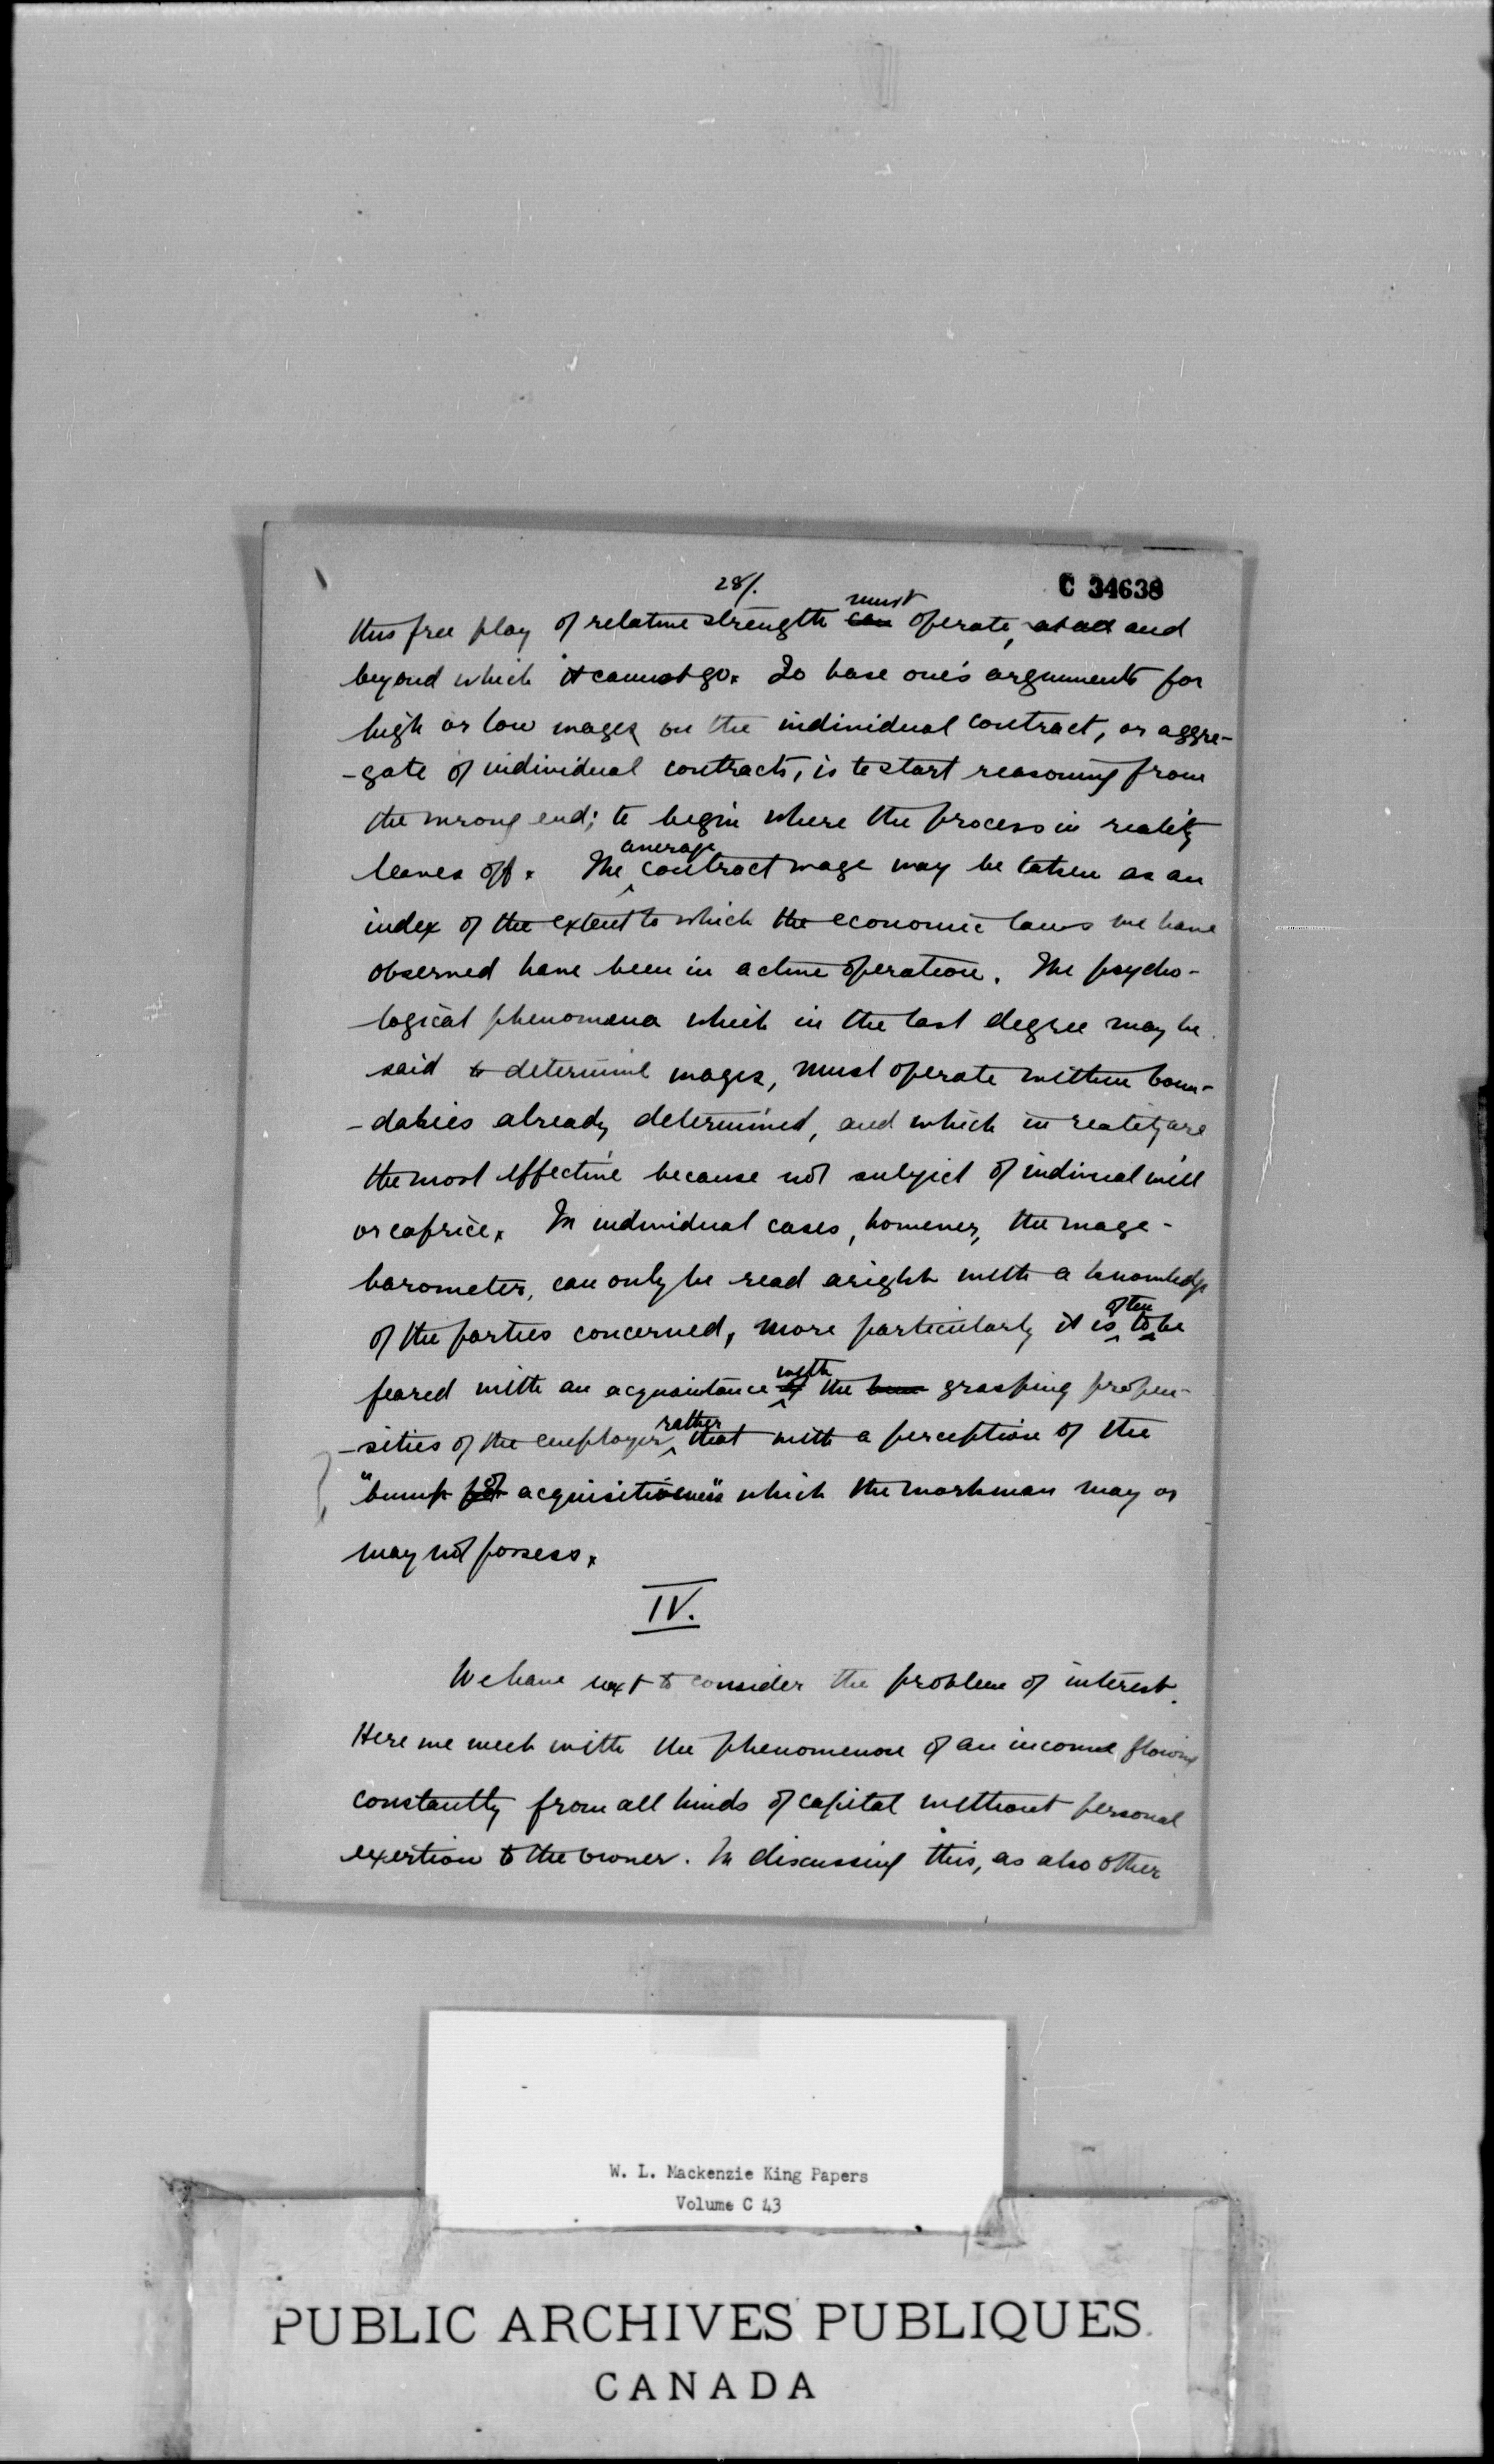 28/.
C 34638
this free play of relative strength can must operate, at all and
beyond which it cannot go. To base one's arguments for
high or low wages on the individual contract, or aggre-
-gate of individual contracts, is to start reasoning from
the wrong end; to begin where the process in reality
leaves off. The average contract wage may be taken as an
index of the extent to which the economic laws we have
observed have been in active operation. The psycho-
-logical phenomena which in the last degree may be
said to determine wages, must operate within boun-
-daries already determined, and which in reality are
the most effective because not subject of indivual will
or caprice. In individual cases, however, the wage-
barometer, can only be read aright with a knowledge
of the parties concerned, more particularly it is often to be
feared with an acquaintance of with the grasping propen-
-sities of the employer rather that with a perception of the
"bump for of acquisitiveness" which the workman may or
may not possess.
IV.
We have next to consider the problem of interest.
Here we meet with the phenomenon of an income flowing
constantly from all kinds of capital without personal
exertion to the owner. In discussing this, as also other
W. L. Mackenzie King Papers
Volume C 43
PUBLIC ARCHIVES PUBLIQUES
CANADA